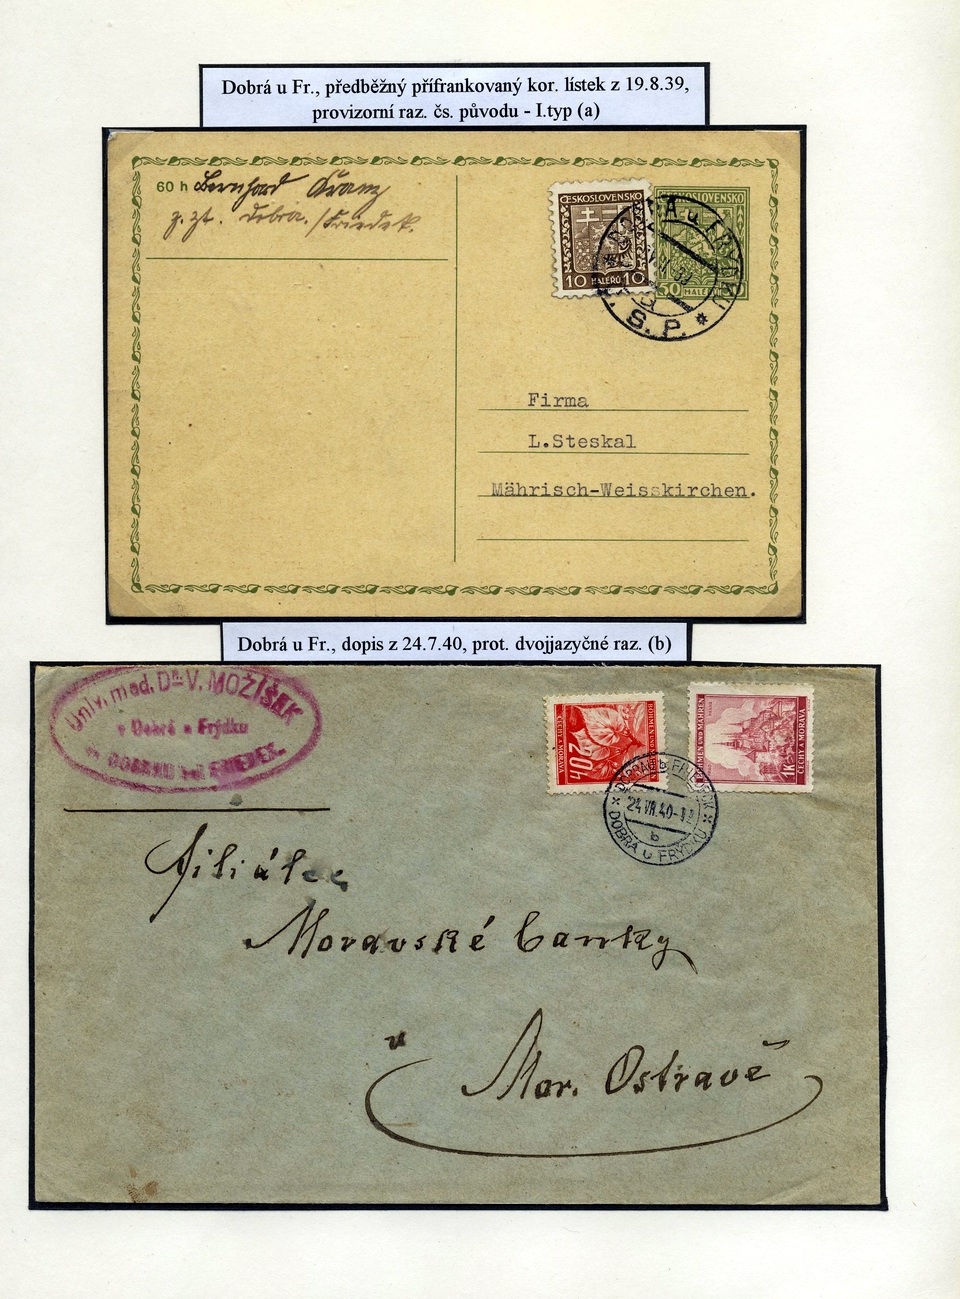 Dobrá u Fr., předběžný přífrankovaný kor. lístek z 19.8.39,
provizorní raz. čs. původu - I.typ (a)
60 h Bernhard Kranz
z. zt. Dobra./Friedek.
ČESKOSLOVENSKO
10 HALÉŘŮ 10
ČESKOSLOVENSKO
50 HALÉŘŮ 50
DOBRÁ u FRÝDKU
Č. S. P.
Firma
L.Steskal
Mährisch-Weisskirchen.
Dobrá u Fr., dopis z 24.7.40, prot. dvojjazyčné raz. (b)
Univ. med. Dr V. MOŽÍŠEK
v Dobré u Frýdku
in DOBRAU b. FRIEDEK.
BÖHMEN UND MÄHREN
ČECHY A MORAVA
40h
BÖHMEN UND MÄHREN
ČECHY A MORAVA
1K
DOBRAU b FRIEDECK
24.VII.40
b
DOBRÁ u FRÝDKU
Filiálce
Moravské banky
v
Mor. Ostravě